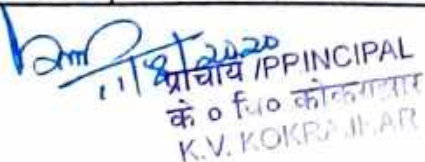 11/8/2020
प्राचार्य /PPINCIPAL
के ० वि० कोकराझार
K.V. KOKRAJHAR